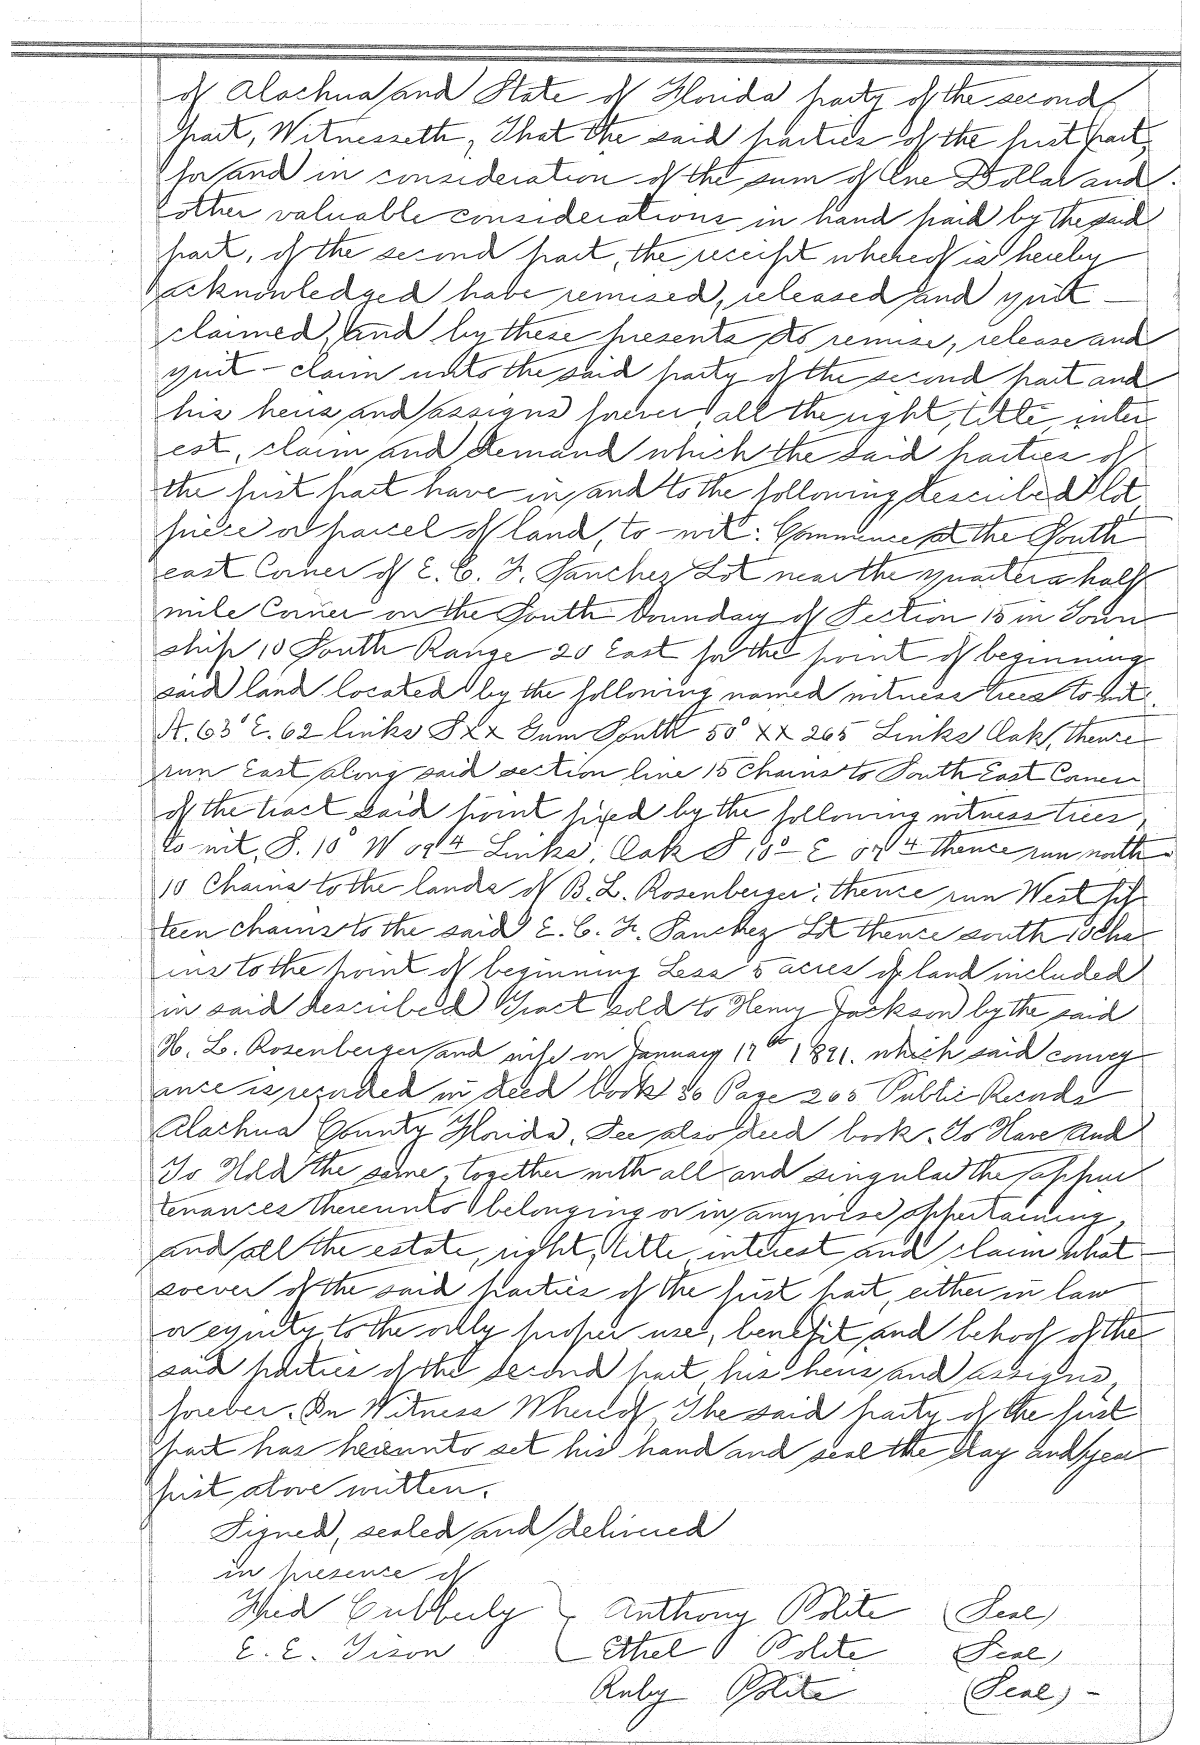 of Alachua and State of Florida party of the second
part, Witnesseth, That the said parties of the first part,
for and in consideration of the sum of One Dollar and
other valuable considerations in hand paid by the said
part, of the second part, the receipt whereof is hereby
acknowledged have remised, released and quit —
claimed, and by these presents do remise, release and
quit - claim unto the said party of the second part and
his heirs and assigns forever all the right, title, inter
est, claim and demand which the said parties of
the first part have in and to the following described lot
piece or parcel of land, to - wit: Commence at the South
east Corner of E. C. F. Sanchez Lot near the quarter a half
mile Corner on the South boundary of Section 15 in Town
ship 10 South Range 20 East for the point of beginning
said land located by the following named witness trees to wit.
63° E. 62 links S X X Gum South 50° X X 265 Links Oak, thence
run East along said section line 15 Chains to South East Corner
of the tract said point fixed by the following witness trees,
to wit, S. 10° W Links, Oak S 10° E thence run north
10 Chains to the lands of B. L. Rosenberger; thence run West fif
teen chains to the said E. C. F. Sanchez Lot thence south 10 Cha
ins to the point of beginning Less 5 acres of land included
in said described Tract sold to Henry Jackson by the said
H. L. Rosenberger and wife on January 17th 1891. which said convey
ance is recorded in deed book 36 Page 265 Public Records
Alachua County Florida, See also deed book. To Have And
To Hold the same, together with all and singular the appur
tenances thereunto belonging or in anywise appertaining,
and all the estate, right, title, interest and claim what —
soever of the said parties of the first part, either in law
or equity to the only proper use, benefit and behoof of the
said parties of the second part, his heirs and assigns,
forever. In Witness Whereof, The said party of the first
part has hereunto set his hand and seal the day and year
first above written.
Signed, sealed and delivered
in presence of
Fred Cubberly Anthony Polite (Seal)
E. E. Tison Ethel Polite (Seal)
Ruby Polite (Seal) -